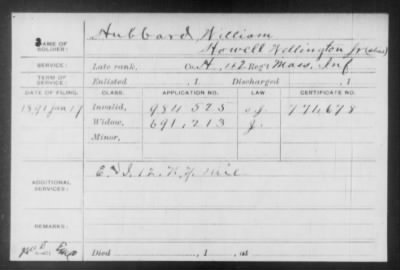 NAME OF SOLDIER: Hubbard William
Howell Wellington Jr (alias)
SERVICE: Late rank, Co. A, 42 Reg't Mass. Inf
TERM OF SERVICE: Enlisted , 1 Discharged , 1
DATE OF FILING. CLASS. APPLICATION NO. LAW. CERTIFICATE NO.
1891 Jan 17 Invalid, 984525 774678
Widow, 691,213
Minor,
ADDITIONAL SERVICES: E & I. 12. N.Y. Inf
REMARKS:
Died , 1 , at